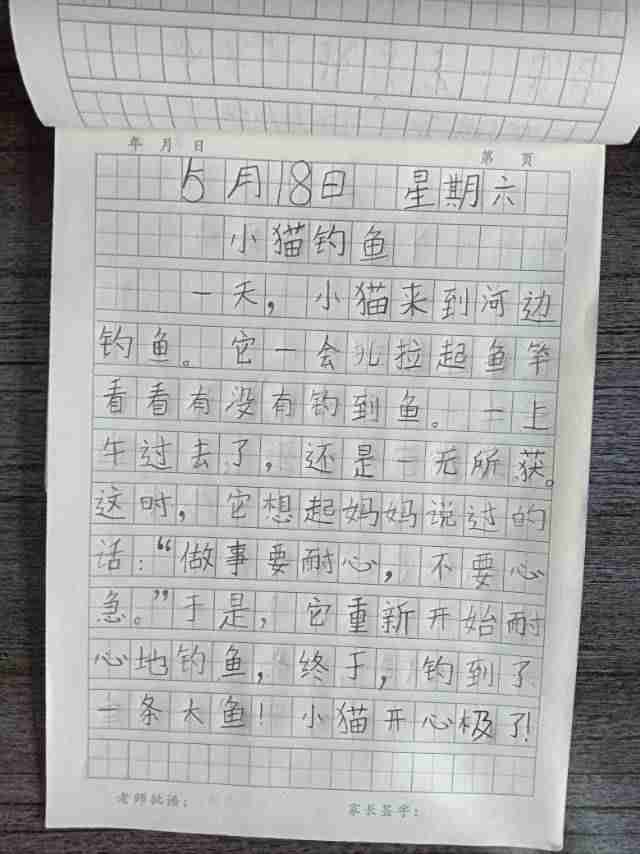 年 月 日 第 页
5月18日 星期六
小猫钓鱼
一天，小猫来到河边
钓鱼。它一会儿拉起鱼竿
看看有没有钓到鱼。一上
午过去了，还是一无所获。
这时，它想起妈妈说过的
话：“做事要耐心，不要心
急。”于是，它重新开始耐
心地钓鱼，终于，钓到了
一条大鱼！小猫开心极了！
老师批语： 家长签字：